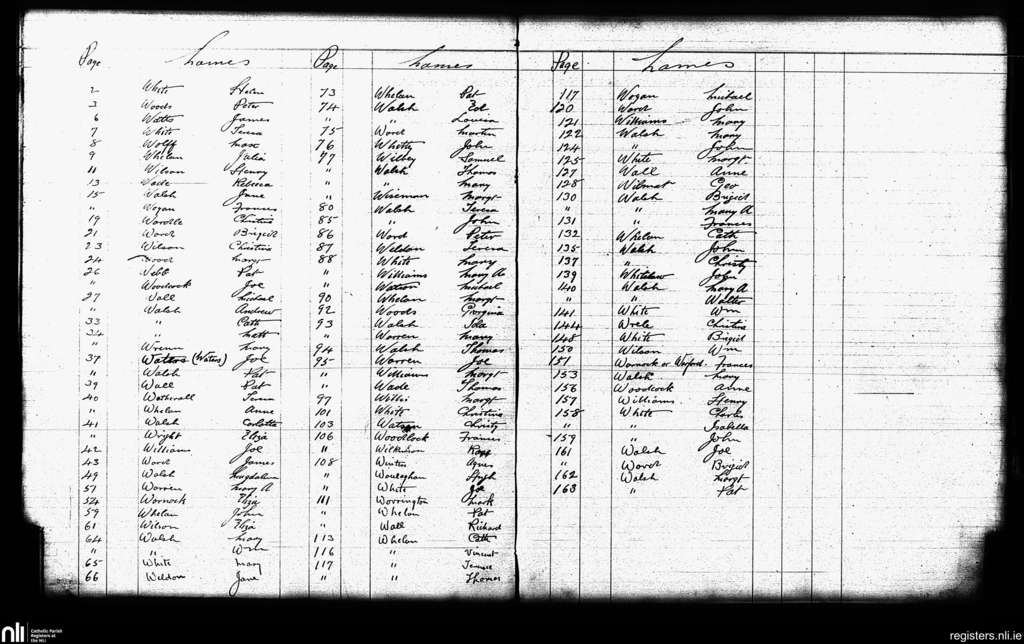 Page Names Page Names Page Names
2 White Helen
3 Woods Peter
6 Watts James
7 White Teresa
8 Wolff Max
9 Whelan Julia
11 Wilson Henry
13 Wade Rebecca
15 Walsh Jane
" Wogan Frances
19 Wardle Christina
21 Ward Brigid
23 Wilson Christina
24 Margt
26 Webb Pat
" Woodcock Joe
27 Wall Michael
" Walsh Andrew
33 " Cath
34 " Matt
" Wrenn Mary
37 Watters (Waters) Joe
" Walsh Pat
39 Wall Pat
40 Wetherall Teresa
" Whelan Anne
41 Walsh Carlotta
" Wright Eliza
42 Williams Joe
43 Ward James
49 Walsh Magdalen
51 Warren Mary A
54 Warnock Eliza
59 Whelan John
61 Wilson Eliza
64 Walsh Mary
" " Wm
65 White Mary
66 Weldon Jane
73 Whelan Pat
74 Walsh Ed
" " Louisa
75 Ward Martin
76 Whitty John
77 Willey Samuel
" Walsh Thomas
" " Mary
" Wiseman Margt
80 Walsh Teresa
85 " John
86 Ward Peter
87 Weldon Teresa
88 White Mary
" Williams Mary A
" Watson Michael
90 Whelan Margt
92 Woods Georgina
93 Walsh Ida
" Warren Mary
94 Walsh Thomas
95 Warren Joe
" Williams Margt
" Wade Thomas
97 Margt
101 White Christina
103 Watson Christy
106 Woodlock Frances
" Wilkinson
108 Winters Agnes
" Steph
" White Jo
111 Worrington Mark
" Whelan Pat
" Wall Richard
113 Whelan Cath
116 " Vincent
117 " Terence
" " Thomas
117 Wogan Michael
120 Ward John
121 Williams Mary
122 Walsh Mary
124 " John
125 White Margt
127 Wall Anne
128 Wilmot Geo
130 Walsh Brigid
" " Mary A
131 " Frances
132 Whelan Cath
135 Walsh John
137 " Christy
139 Whitelaw John
140 Walsh Mary A
" " Walter
141 White Wm
144 Christina
148 White Brigid
150 Wilson Wm
151 Warnock or Frances
153 Walsh Mary
156 Woodcock Anne
157 Williams Henry
158 White Charles
" " Isabella
159 " John
161 Walsh Joe
" Ward Brigid
162 Walsh Margt
163 " Pat
nli Catholic Parish
Registers at
the NLI
registers.nli.ie